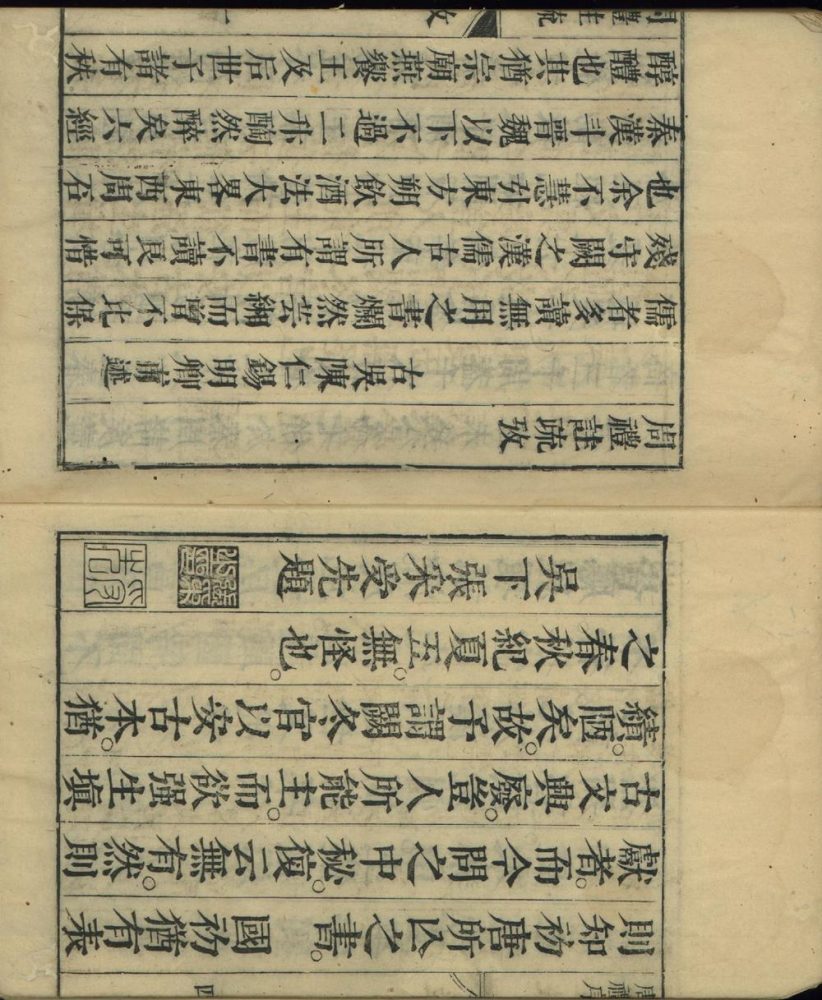 則知初唐所亾之書。國初猶有表
獻者。而今問之中秘。復云無有。然則
古文興廢。豈人所能主。而欲强生塡
續。陋矣。故子謂闕冬官以安古本。猶
之春秋紀夏五。無怪也。
吳下張采受先題
周禮註疏攷
古吳陳仁錫明卿甫述
儒者多讀無用之書爛然芸緗而曾不比保
殘守闕之漢儒古人所謂有書不讀良可惜
也余不慧引東方朔飲酒法大畧東西周石
秦漢斗晉魏以下不過二升醄然醉矣六經
醇醴也其猶宗廟燕饗王及后世子諸有秩